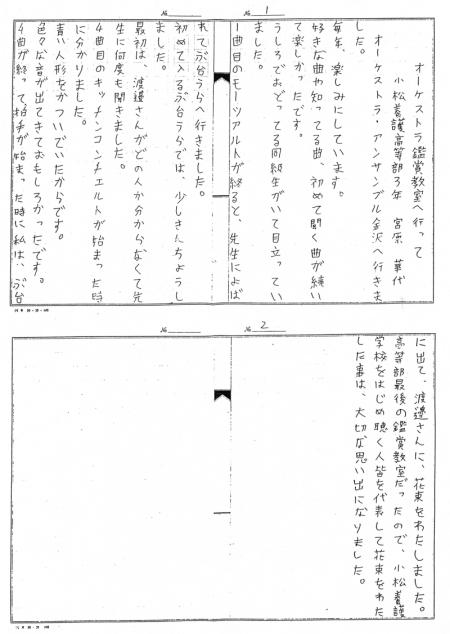 № 1
オーケストラ鑑賞教室へ行って
小松養護高等部3年 宮原 華代
オーケストラ・アンサンブル金沢へ行きま
した。
毎年、楽しみにしています。
好きな曲や知ってる曲、初めて聞く曲が続い
て楽しかったです。
うしろでおどってる同級生がいて目立ってい
ました。
1曲目のモーツアルトが終ると、先生によば
れてぶ台うらへ行きました。
初めて入るぶ台うらでは、少しきんちょうし
ました。
最初は、渡邉さんがどの人か分からなくて先
生に何度も聞きました。
4曲目のキッチンコンチェルトが始まった時
に分かりました。
青い人形をかついでいたからです。
色々な音が出てきておもしろかったです。
4曲が終って拍手が始まった時に私は、ぶ台
№ 2
に出て、渡邉さんに、花束をわたしました。
高等部最後の鑑賞教室だったので、小松養護
学校をはじめ聴く人皆を代表して花束をわた
した事は、大切な思い出になりました。